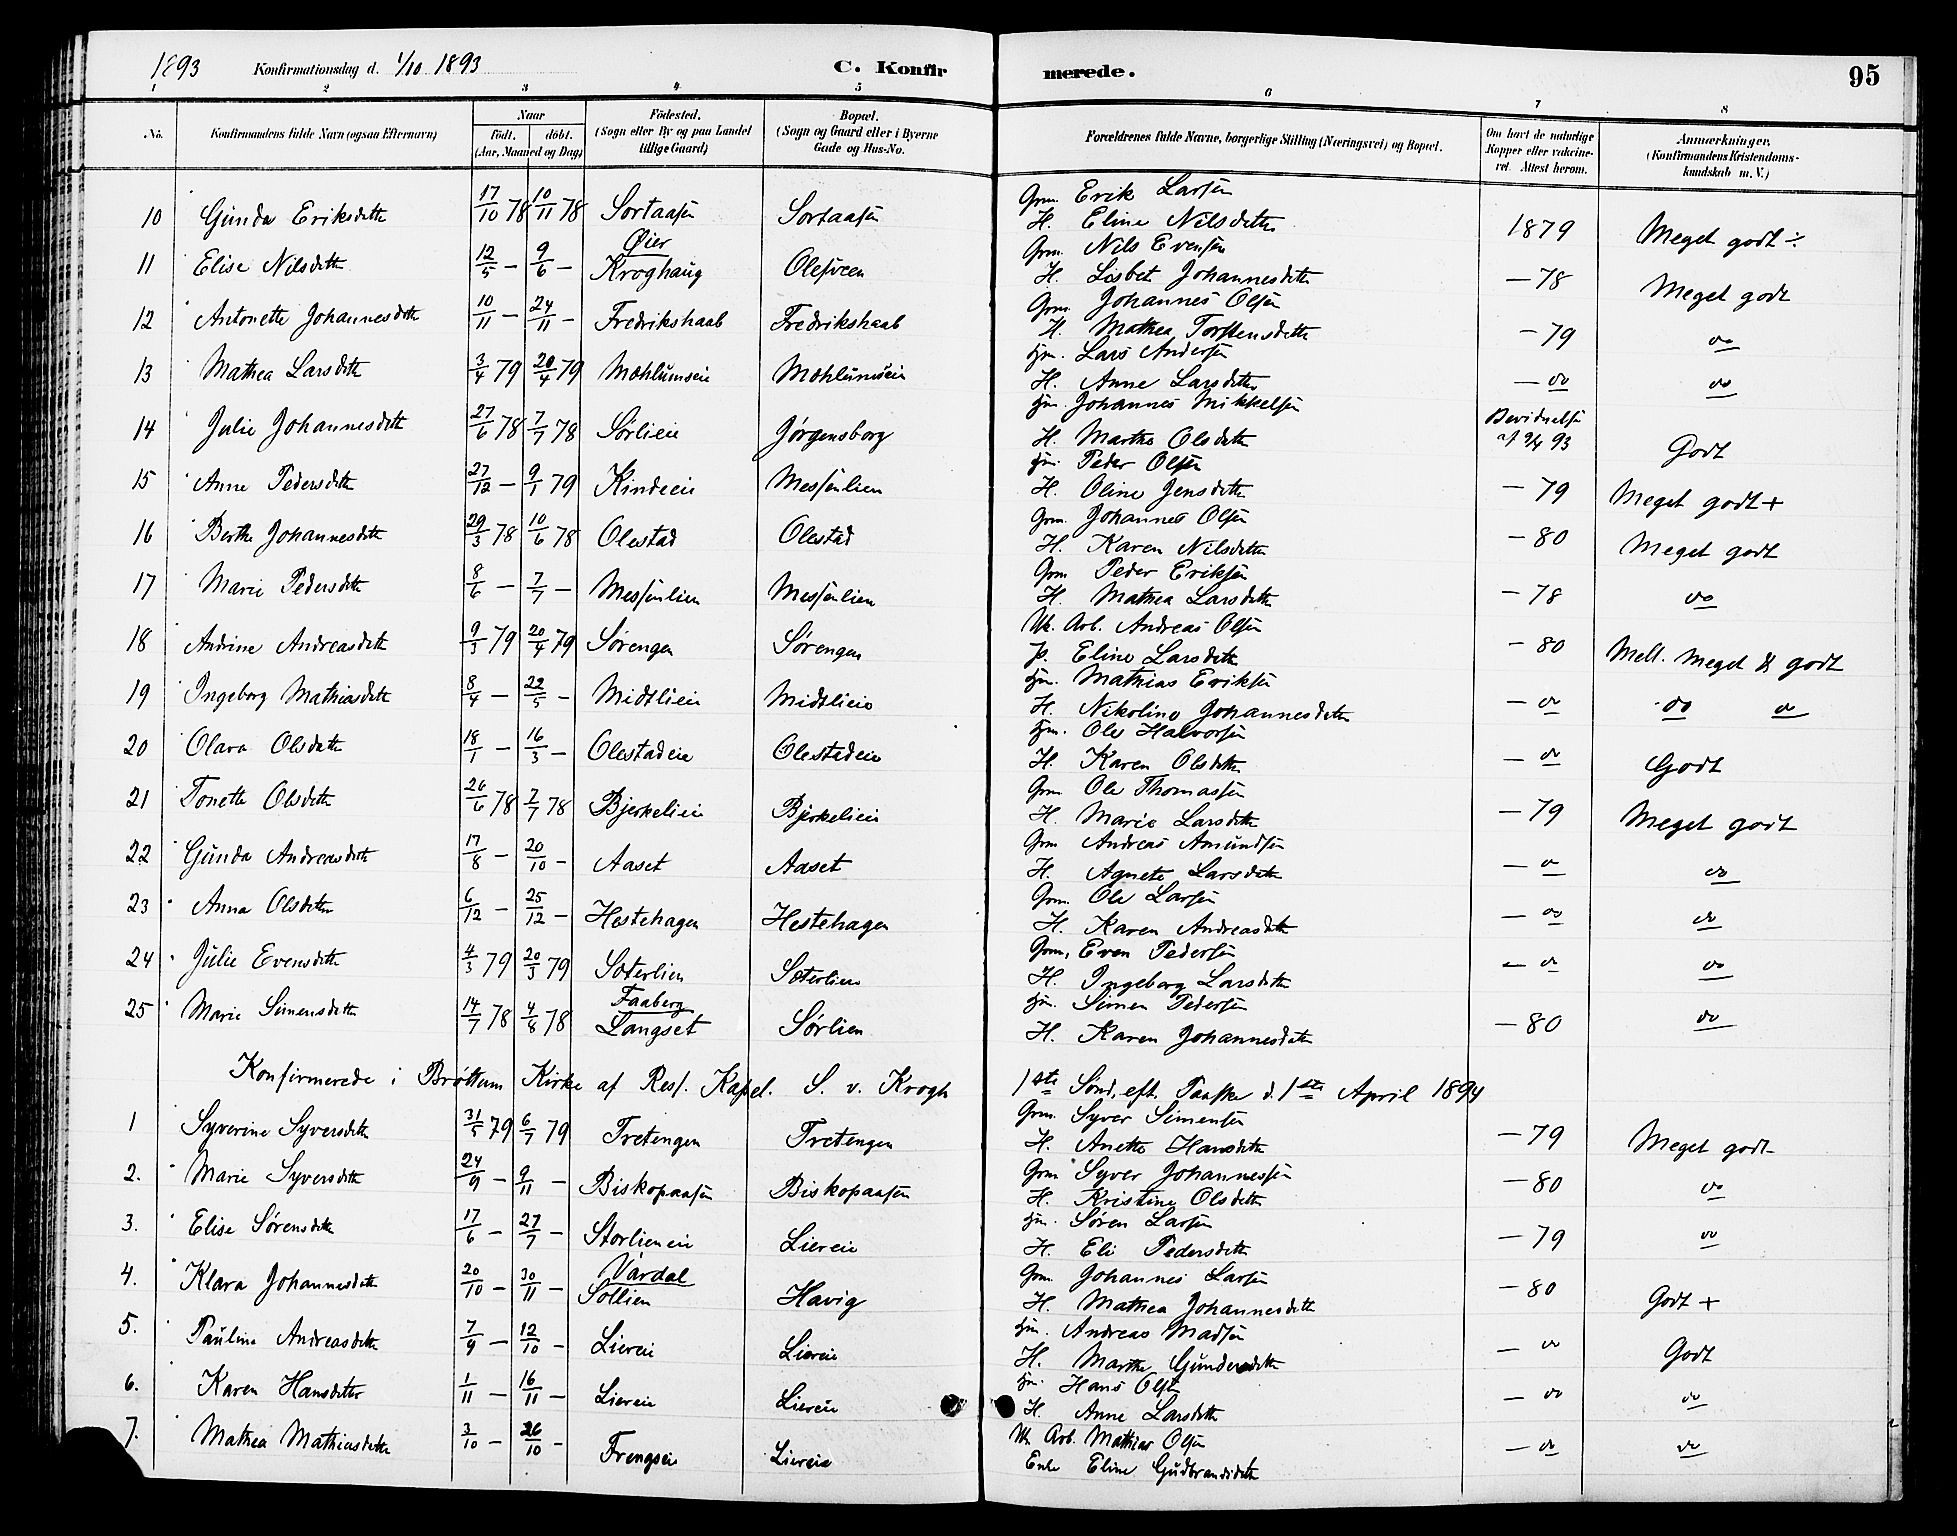 1893 Konfirmationsdag d. 1/10 1893 C. Konfirmerede. 95
1 2 3 4 5 6 7 8
No. Konfirmandens fulde Navn (ogsaa Efternavn) Naar födt. döbt. (Aar, Maaned og Dag) Födested. (Sogn eller By og paa Landet tillige Gaard) Bopæl. (Sogn og Gaard eller i Byerne Gade og Hus-No. Forældrenes fulde Navne, borgerlige Stilling (Næringsvei) og Bopæl. Om havt de naturlige Kopper eller vakcineret. Attest herom. Anmærkninger. (Konfirmandens Kristendomskundskab m. V.)
10 Gunda Eriksdatter 17/10 78 10/11 78 Sortaasen Sortaasen Grm. Erik Larsen H. Eline Nilsdatter 1879 Meget godt ÷
11 Elise Nilsdatter 12/5 – 9/6 – Øier Kroghaug Olesveen Grm. Nils Evensen H. Lisbet Johannesdatter – 78 Meget godt
12 Antonette Johannesdatter 10/11 – 24/11 – Fredrikshaab Fredrikshaab Grm. Johannes Olsen H. Mathea Torstensdatter – 79 do
13 Mathea Larsdatter 3/4 79 20/4 79 Mæhlumseie Mæhlumseie Hjm. Lars Andersen H. Anne Larsdatter – do do
14 Julie Johannesdatter 27/6 78 7/7 78 Sørlieie Jørgensborg Hjm. Johannes Mikkelsen H. Marthe Olsdatter Bevidnelse af 93 Godt
15 Anne Pedersdatter 27/12 – 9/1 79 Kindeeie Messenlien Hjm. Peder Olsen H. Oline Jensdatter – 79 Meget godt +
16 Berthe Johannesdatter 29/3 78 10/6 78 Olestad Olestad Grm. Johannes Olsen H. Karen Nilsdatter – 80 Meget godt
17 Marie Pedersdatter 8/6 – 7/7 – Messenlien Messenlien Grm Peder Eriksen H. Mathea Larsdatter – 78 do
18 Andrine Andreasdatter 9/3 79 20/4 79 Sørengen Sørengen Uk. Arb. Andreas Olsen P. Eline Larsdatter – 80 Mell. Meget & godt
19 Ingeborg Mathiasdatter 8/4 – 22/5 – Midtlieie Midtlieie Hjm. Mathias Eriksen H. Nikoline Johannesdatter – do do do
20 Olava Olsdatter 18/1 – 16/3 – Olestadeie Olestadeie Hjm. Ole Halvorsen H. Karen Olsdatter – do Godt
21 Tonette Olsdatter 26/6 78 7/7 78 Bjerkelieie Bjerkelieie Grm. Ole Thomassen H. Marie Larsdatter – 79 Meget godt
22 Gunda Andreasdatter 17/8 – 20/10 – Aaset Aaset Grm Andreas Amundsen H. Agnete Larsdatter – do do
23 Anna Olsdatter 6/12 – 25/12 – Hestehagen Hestehagen Grm. Ole Larsen H. Karen Andreasdatter – do do
24 Julie Evensdatter 4/3 79 20/3 79 Sæterlien Sæterlien Grm. Even Pedersen H. Ingeborg Larsdatter – do do
25 Marie Simensdatter 14/7 78 4/8 78 Faaberg Langset Sørlien Hjm. Simen Pedersen H. Karen Johannesdatter – 80 do
Konfirmerede i Brøttum Kirke af Res. Kapel. S. v. Krogh 1ste Sønd. eft. Paaske d. 1ste April 1894
1 Syverine Syversdatter 31/5 79 6/7 79 Tretengen Tretengen Grm. Syver Simensen H. Anette Hansdatter – 79 Meget godt
2. Marie Syversdatter 24/9 – 9/11 – Biskopaasen Biskopaasen Grm Syver Johannessen H. Kristine Olsdatter – 80 do
3. Elise Sørensdatter 17/6 – 27/7 – Storlieneie Liereie Hjm. Søren Larsen H. Eli Pedersdatter – 79 do
4. Klara Johannesdatter 20/10 – 30/11 – Vardal Sollien Havig Grm. Johannes Larsen H. Mathea Johannesdatter – 80 Godt +
5. Pauline Andreasdatter 7/9 – 12/10 – Liereie Liereie Hjm. Andreas Madsen H. Marthe Gundersdatter – do Godt
6. Karen Hansdatter 1/11 – 16/11 – Liereie Liereie Hjm. Hans Olsen H. Anne Larsdatter – do do
7. Mathea Mathiasdatter 3/10 – 26/10 – Frengseie Liereie Uk Arb. Mathias Olsen Enke Eline Gudbrandsdatter – do do